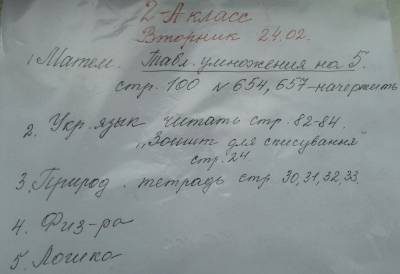 2-А класс
Вторник 24.02.
1. Матем. Табл. умножения на 5.
стр. 100 № 654, 657-начертить
2. Укр. язык читать стр. 82-84.
"Зошит для списування"
стр. 24
3. Природ. тетрадь стр. 30,31,32,33.
4. Физ-ра
5. Логика